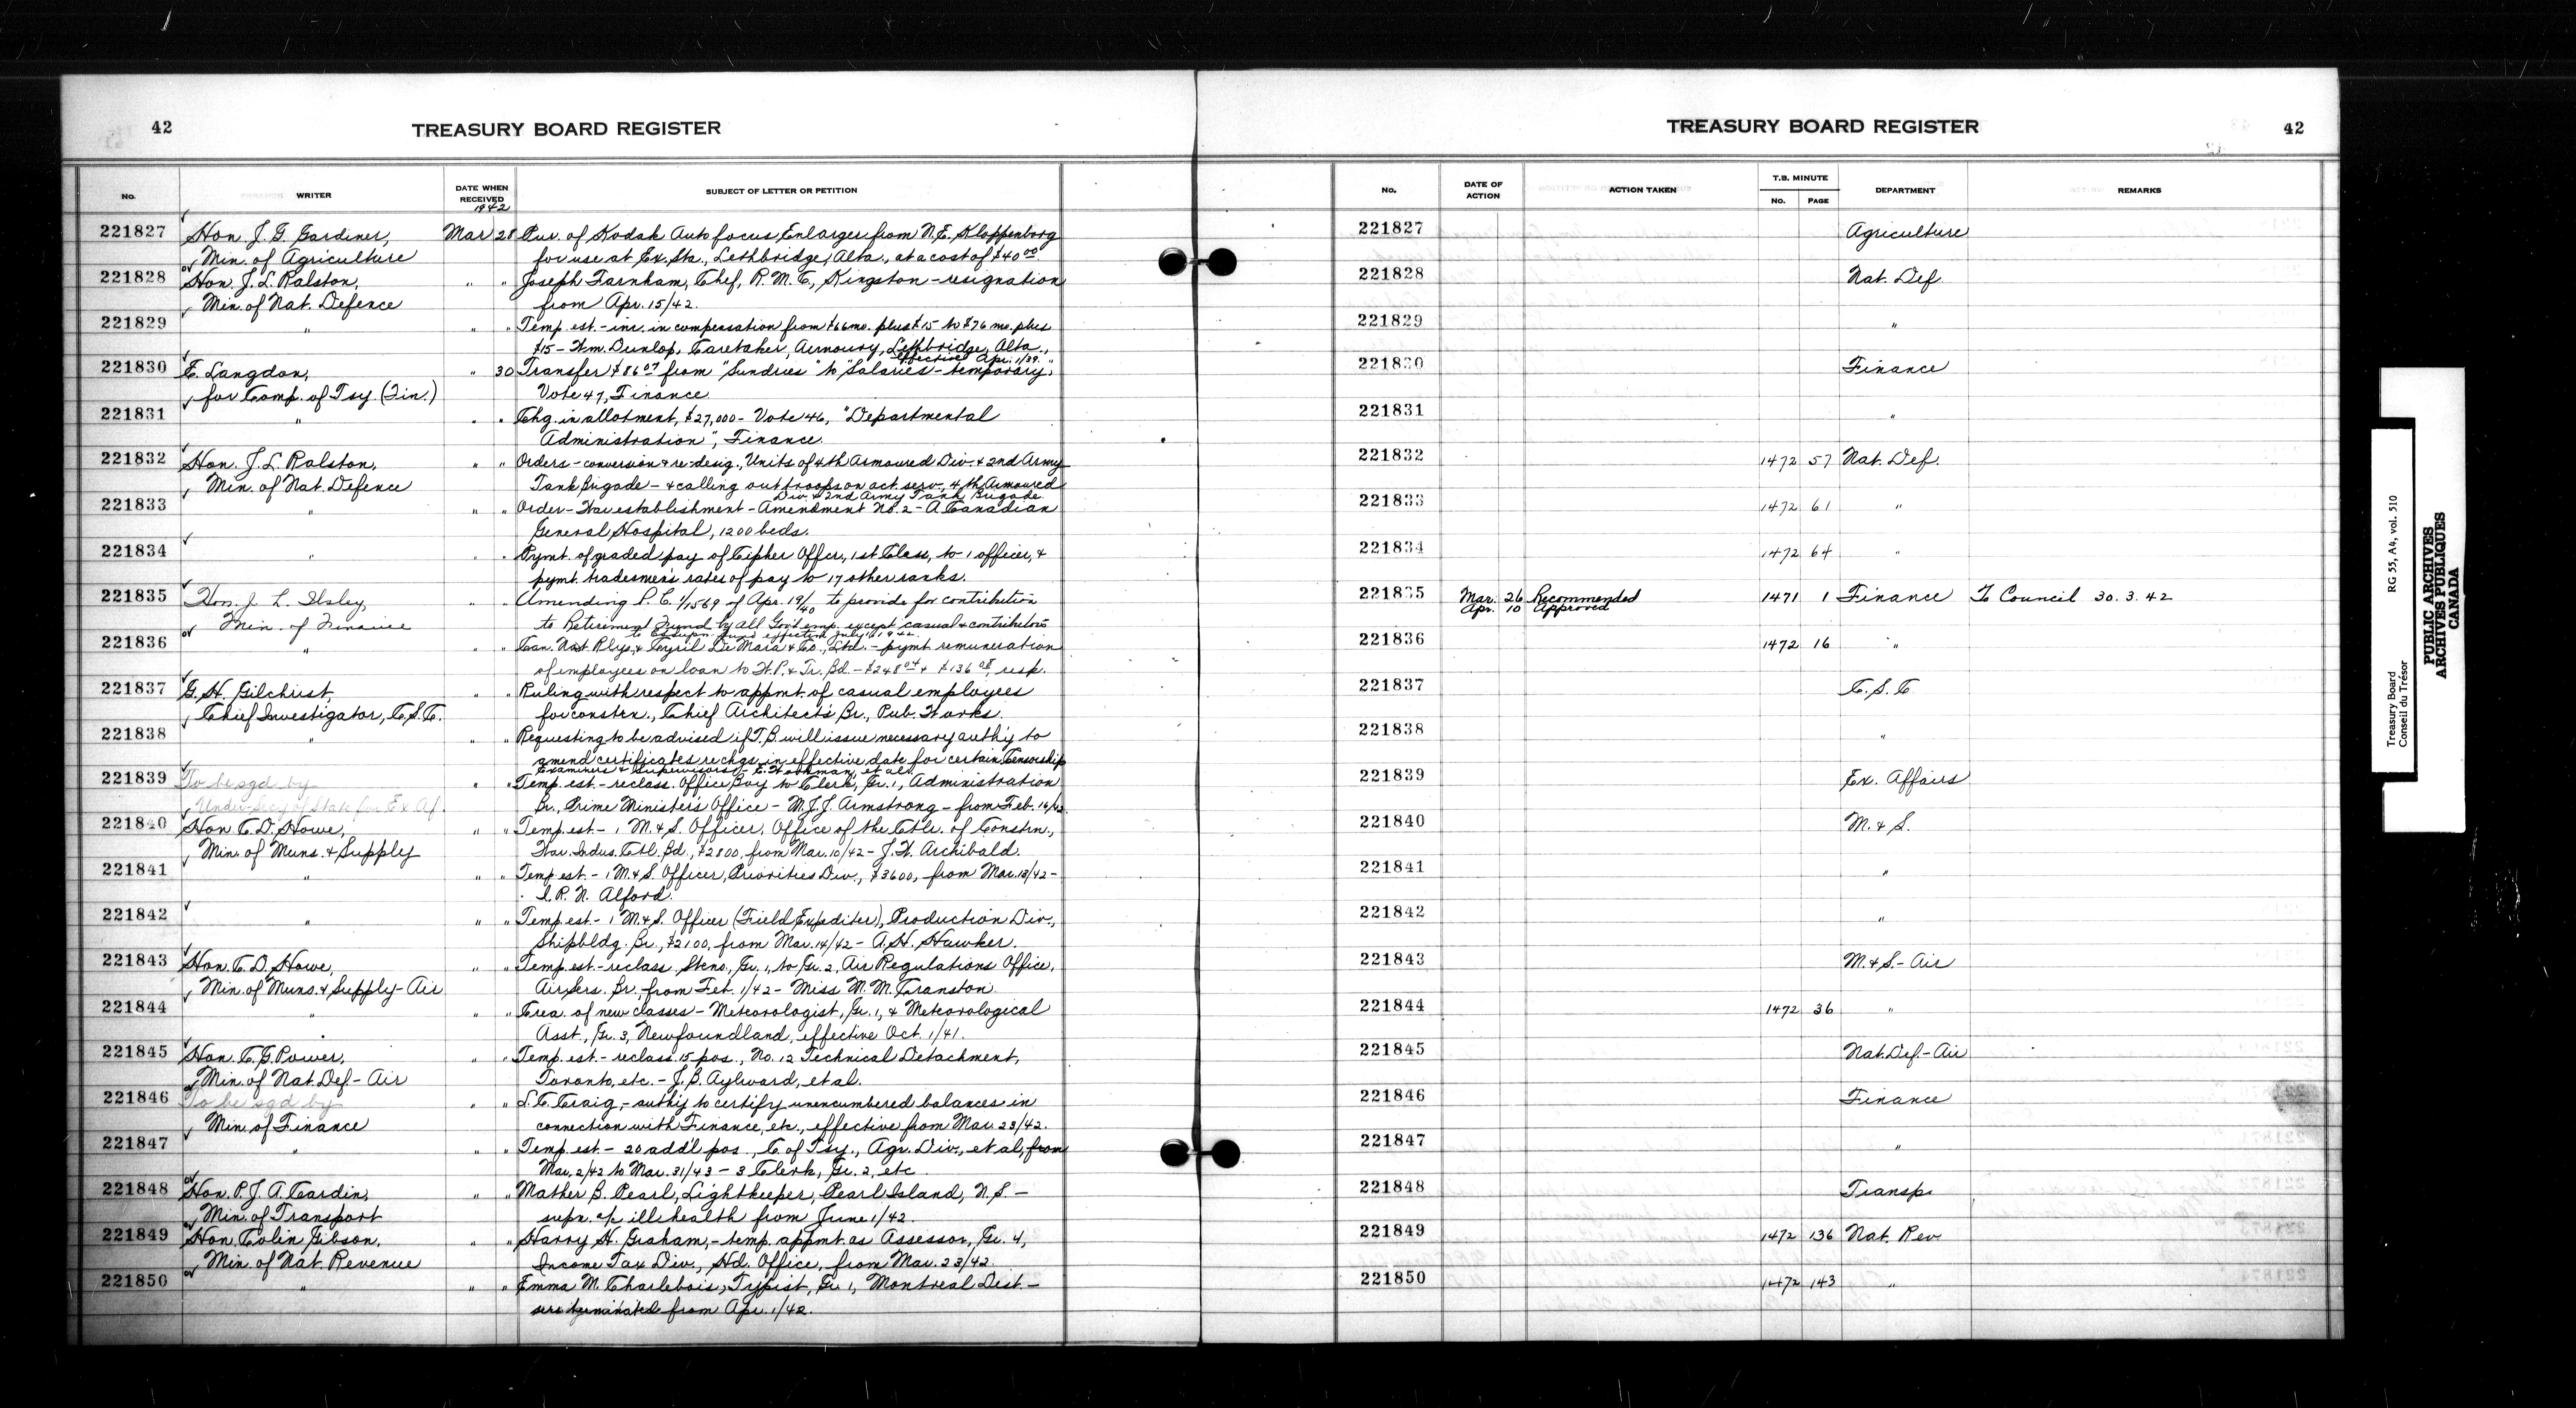 42
TREASURY BOARD REGISTER
No.
WRITER
DATE WHEN RECEIVED
1942
SUBJECT OF LETTER OR PETITION
221827 Hon. J. G. Gardiner, Mar 28 Pur. of Kodak Auto focus Enlarger from N.E. Kloppenborg
Min. of Agriculture for use at Ex. Sta., Lethbridge, Alta., at a cost of $40.00
221828 Hon. J. L. Ralston, " " Joseph Farnham, Chef, R.M.C., Kingston - resignation
Min. of Nat. Defence from Apr. 15/42.
221829 " " " Temp. est. - inc. in compensation from $66 mo. plus $15 to $76 mo. plus
$15 - Wm. Dunlop, Caretaker, Armoury, Lethbridge, Alta.,
effective Apr. 1/39.
221830 C. Langdon, " 30 Transfer $86.07 from "Sundries" to "Salaries - temporary,"
for Comp. of Tsy (Fin.) Vote 47, Finance
221831 " " " Chg. in allotment, $27,000 - Vote 46, "Departmental
Administration", Finance.
221832 Hon. J. L. Ralston, " " Orders - conversion & re-desig., Units of 4th Armoured Div. & 2nd Army
Min. of Nat. Defence Tank Brigade - & calling out troops on act. serv., 4th Armoured
Div. & 2nd Army Tank Brigade
221833 " " " Order - War establishment - Amendment No. 2 - A Canadian
General Hospital, 1200 beds.
221834 " " " Pymt. of graded pay of Cipher Offcr, 1st Class, to 1 officer, &
pymt. tradesmen's rates of pay to 17 other ranks.
221835 Hon. J. L. Ilsley, " " Amending P.C. 1/1569 of Apr. 19/40 to provide for contribution
Min. of Finance to Retirement Fund by all Gov't emp. except casual & contributors
to C.S. Supn. Fund effective July 1, 1942.
221836 " " " Can. Nat. Rlys. & Cyril De Mara & Co., Ltd. - pymt remuneration
of employees on loan to W.P. & Tr. Bd. - $248.04 & $136.08, resp.
221837 G. H. Gilchrist, " " Ruling with respect to appmt. of casual employees
Chief Investigator, C.S.C. for constrn., Chief Architect's Br., Pub. Works.
221838 " " " Requesting to be advised if T.B. will issue necessary auth'y to
amend certificates re chgs. in effective date for certain Censorship
Examiners & Supervisors - E. Workman, et al.
221839 To be sgd by " " Temp. est. - reclass. Office Boy to Clerk, Gr. 1, Administration
Under-Sec'y of State for Ex. Af. Br., Prime Minister's Office - M.J.J. Armstrong - from Feb. 16/42
221840 Hon. C. D. Howe, " " Temp. est. - 1 M. & S. Officer, Office of the Ctlr. of Constrn.,
Min. of Muns. & Supply War. Indus. Ctl. Bd., $2800, from Mar. 10/42 - J. W. Archibald.
221841 " " " Temp. est. - 1 M. & S. Officer, Priorities Div., $3600, from Mar. 13/42 -
I. R. N. Alford.
221842 " " " Temp. est. - 1 M. & S. Officer (Field Expediter), Production Div.,
Shipbldg. Br., $2100, from Mar. 14/42 - A. H. Hawker.
221843 Hon. C. D. Howe, " " Temp. est. - reclass. Steno., Gr. 1, to Gr. 2, Air Regulations Office,
Min. of Muns. & Supply - Air Air Sers. Br., from Feb. 1/42 - Miss M. M. Cranston.
221844 " " " Crea. of new classes - Meteorologist, Gr. 1, & Meteorological
Asst., Gr. 3, Newfoundland, effective Oct. 1/41.
221845 Hon. C. G. Power, " " Temp. est. - reclass. 15 pos., No. 12 Technical Detachment,
Min. of Nat. Def. - Air Toronto, etc. - J. B. Aylward, et al.
221846 To be sgd by " " L. C. Craig, - auth'y to certify unencumbered balances in
Min. of Finance connection with Finance, etc., effective from Mar. 23/42.
221847 " " " Temp. est. - 20 add'l pos., C. of Tsy., Agr. Div., et al, from
Mar. 2/42 to Mar. 31/43 - 3 Clerk, Gr. 2, etc.
221848 Hon. P. J. A. Cardin, " " Mather B. Pearl, Lightkeeper, Pearl Island, N.S. -
Min. of Transport supn. a/c ill health from June 1/42.
221849 Hon. Colin Gibson, " " Harry H. Graham, - temp. appmt. as Assessor, Gr. 4,
Min. of Nat. Revenue Income Tax Div., Hd. Office, from Mar. 23/42.
221850 " " " Emma M. Charlebois, Typist, Gr. 1, Montreal Dist -
sers terminated from Apr. 1/42.
TREASURY BOARD REGISTER
42
No.
DATE OF ACTION
ACTION TAKEN
T.B. MINUTE
No. PAGE
DEPARTMENT
REMARKS
221827 Agriculture
221828 Nat. Def.
221829 "
221830 Finance
221831 "
221832 1472 57 Nat. Def.
221833 1472 61 "
221834 1472 64 "
221835 Mar. 26 Recommended 1471 1 Finance To Council 30.3.42
Apr. 10 Approved
221836 1472 16 "
221837 C.S.C
221838 "
221839 Ex. Affairs
221840 M. & S.
221841 "
221842 "
221843 M. & S. - Air
221844 1472 36 "
221845 Nat. Def. - Air
221846 Finance
221847 "
221848 Transp.
221849 1472 136 Nat. Rev
221850 1472 143 "
Treasury Board
Conseil du Trésor
RG 55, A4, vol. 510
PUBLIC ARCHIVES
ARCHIVES PUBLIQUES
CANADA